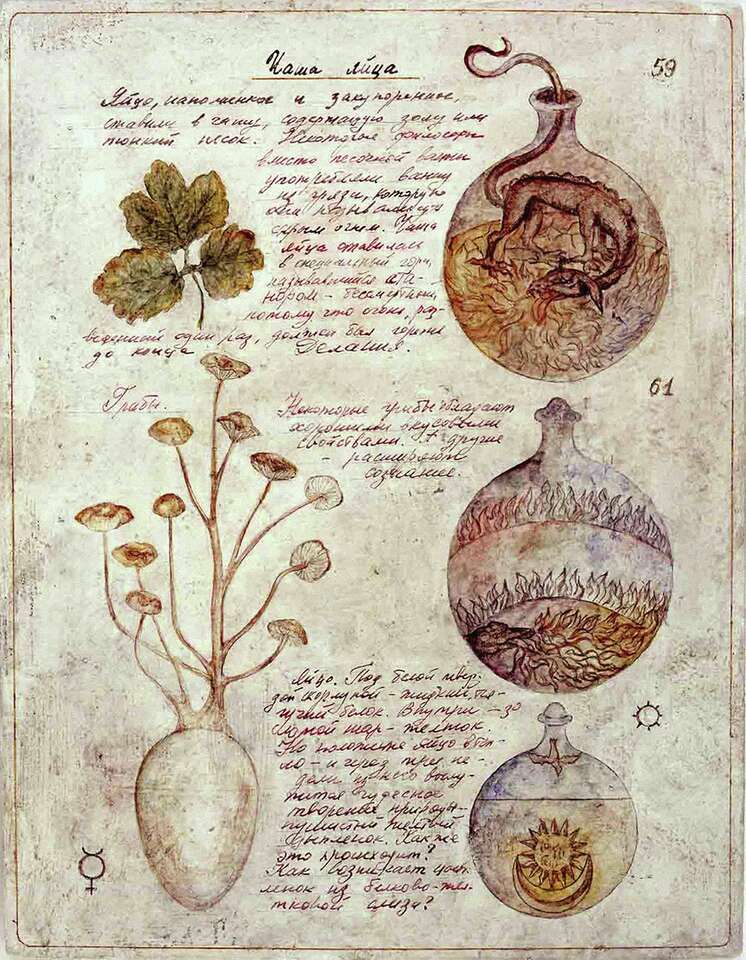 Чаша яйца
59
Яйцо, наполненное и закупоренное,
ставили в чашу, содержащую золу или
тонкий песок. Некоторые философы
вместо песочной ванны
употребляли ванну
из грязи, которую
они называли
сырым огнем. Чаша
яйца ставилась
в специальный горн,
называвшийся ата-
нором – бессмертным,
потому что огонь, раз-
веденный один раз, должен был гореть
до конца Делания.
61
Грибы.
Некоторые грибы обладают
хорошими вкусовыми
свойствами. А другие
– расширяют
сознание.
Яйцо. Под белой твер-
дой скорлупой – жидкий, те-
кучий белок. Внутри – зо
лотой шар – желток
Но положите яйцо в теп-
ло – и через три не-
дели из него вылу-
пится чудесное
творенье природы-
пушистый желтый
цыпленок. Как же
это происходит?
Как возникает цып-
ленок из белково-жел-
тковой слизи?